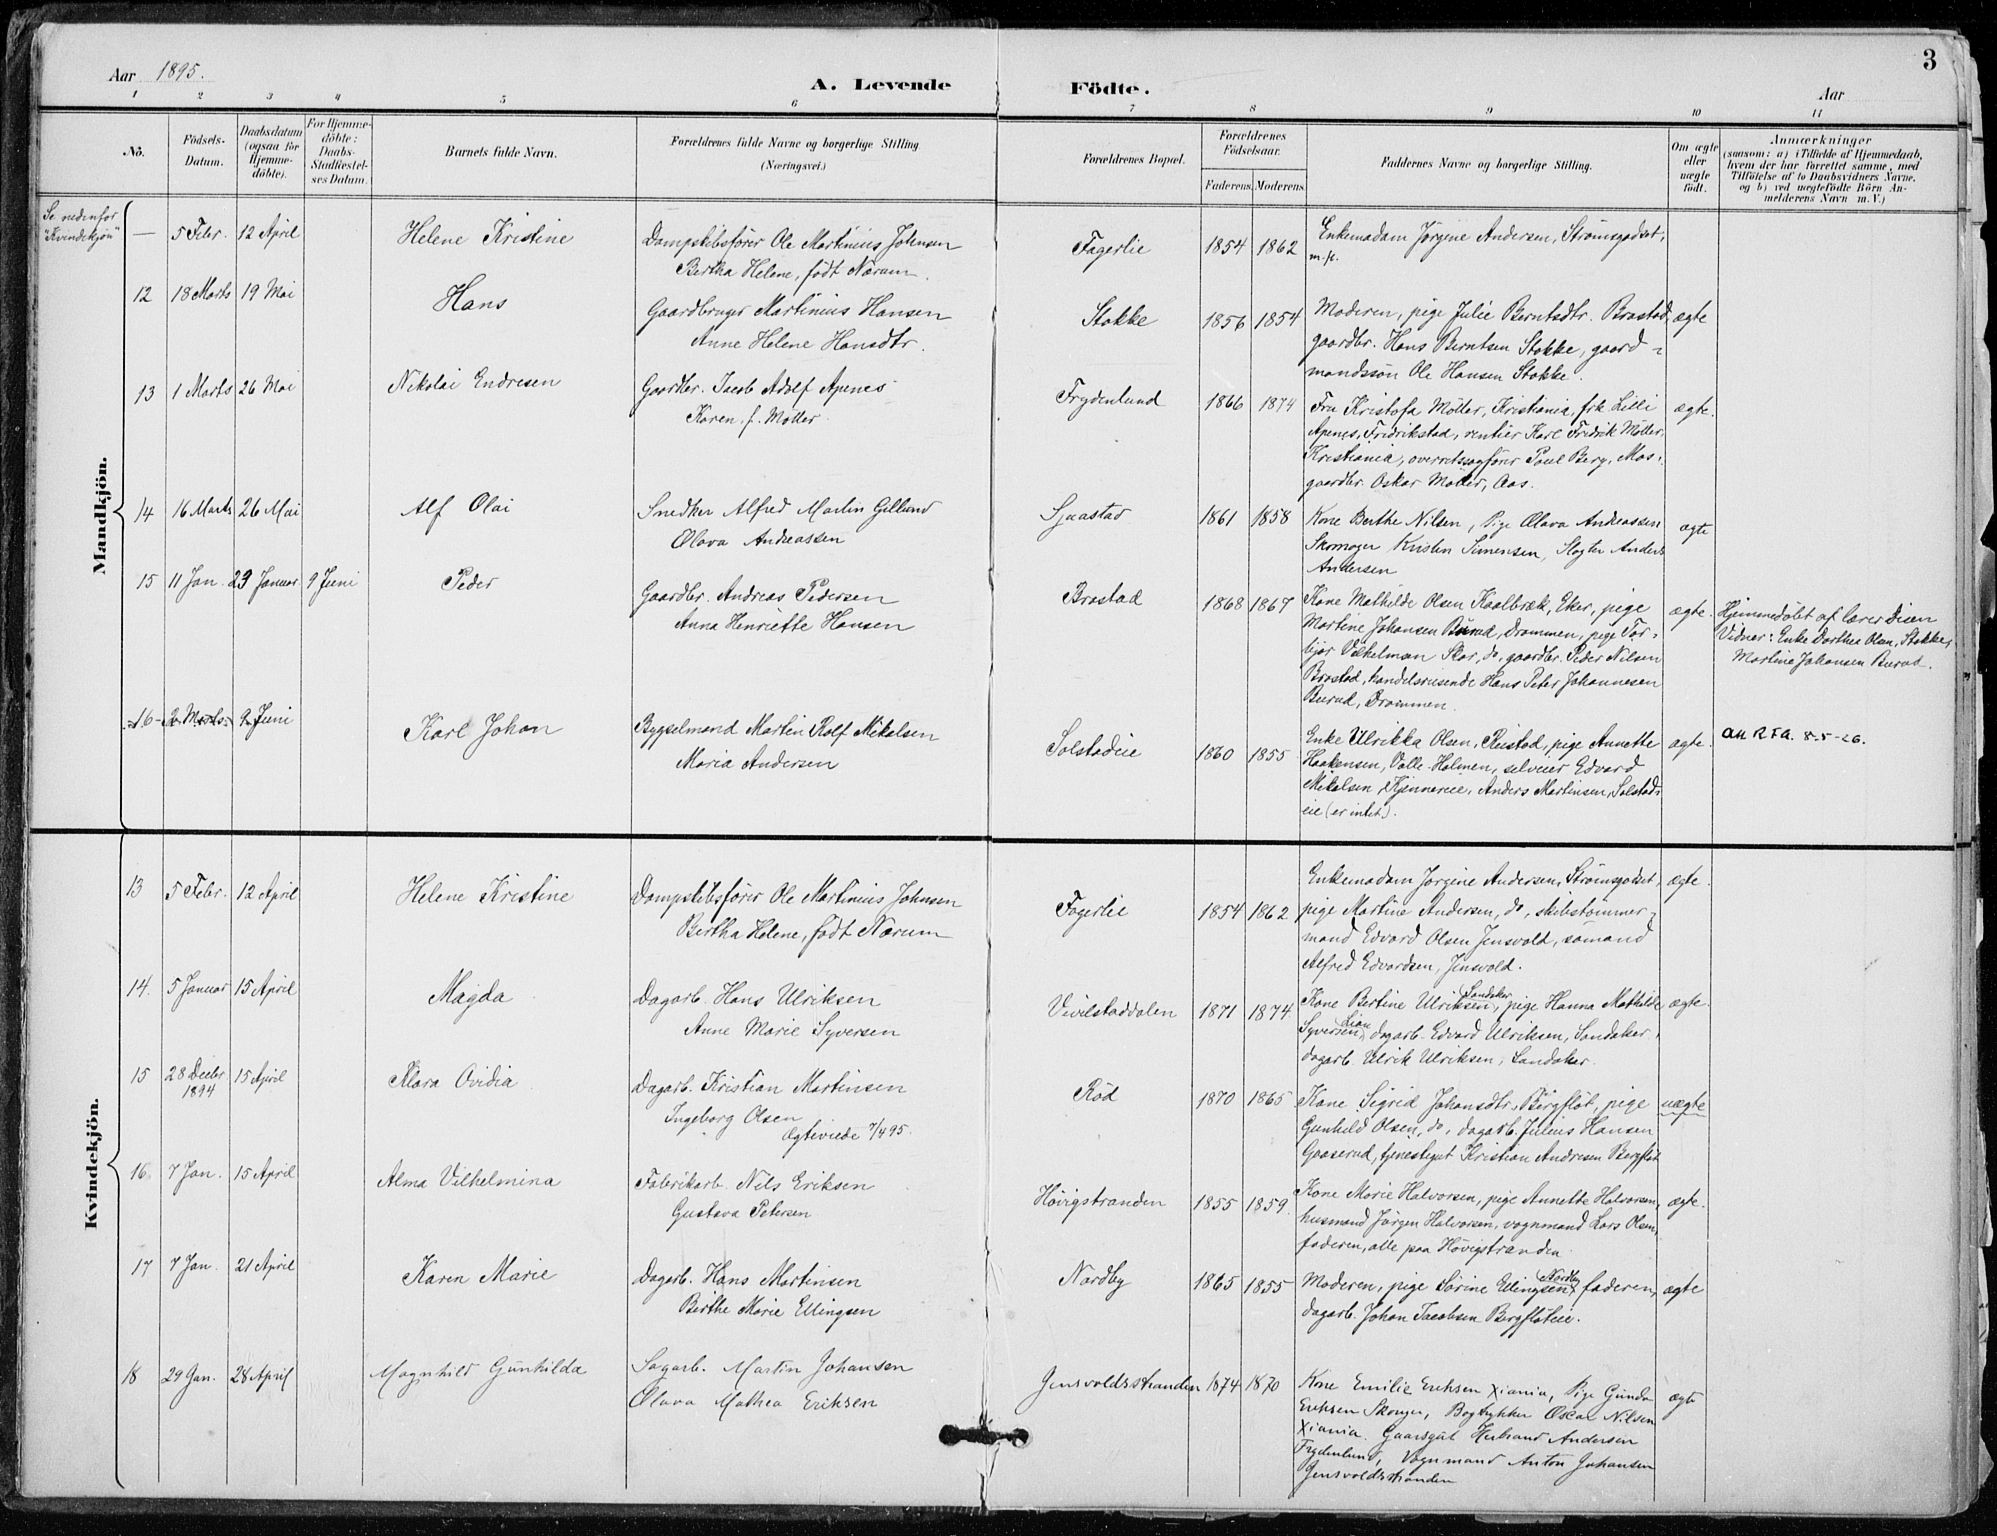 3
Aar 1895.
A. Levende Födte.
Aar
1 2 3 4 5 6 7 8 9 10 11
Nô.
Födsels-
Datum.
Daabsdatum
(ogsaa for
Hjemme-
döbte).
For Hjemme-
döbte:
Daabs-
Stadfæstel-
ses Datum.
Barnets fulde Navn.
Forældrenes fulde Navne og borgerlige Stilling
(Næringsvei.)
Forældrenes Bopæl.
Forældrenes
Födselsaar.
Faderens. Moderens.
Faddernes Navne og borgerlige Stilling.
Om ægte
eller
uægte
födt.
Anmærkninger
(saasom: a) i Tilfælde af Hjemmedaab,
hvem der har forrettet samme, med
Tilföielse af to Daabsvidners Navne,
og b) ved uægtefödte Börn An-
melderens Navn m. V.)
Mandkjön.
Se nedenfor
"Kvindekjøn"
— 5 Febr. 12 April Helene Kristine
Dampskibsfører Ole Martinius Johnsen
Bertha Helene, født Nærum.
Fagerlie 1854 1862
Enkemadam Jørgine Andersen, Strømsgodset,
m.p.
12 18 Marts 19 Mai Hans
Gaardbruger Martinius Hansen
Anne Helene Hansdtr.
Stokke 1856 1854
Moderen, pige Julie Berntsdtr. Brastad,
gaardbr. Hans Berntsen Stokke, gaard-
mandssøn Ole Hansen Stokke.
ægte
13 1 Marts 26 Mai Nikolai Endresen
Gaardbr. Jacob Adolf Apenes
Karen f. Møller
Frydenlund 1866 1874
Fru Kristofa Møller, Kristiania, frk. Lilli
Apenes, Fredrikstad, rentier Karl Fredrik Møller,
Kristiania, overretssagfører Poul Berg, Mos-
gaardbr. Oskar Møller, Aas.
ægte.
14 16 Marts 26 Mai Alf Olai
Snedker Alfred Martin Gillund
Olava Andreassen
Sjaastad 1861 1858
Kone Berthe Nilsen, Pige Olava Andreassen
Skomager Kristen Simensen, Slagter Anders
Andersen
ægte
15 11 Jan. 29 Januar 9 Juni Peder
Gaardbr. Andreas Pedersen
Anna Henriette Hansen
Brastad 1868 1867
Kone Mathilde Olsen Kaalbræk, Eker, pige
Martene Johansen Burud, Drammen, pige Tor-
bjør Vilhelmsen Skar, do, gaardbr. Peder Nilsen
Brastad, handelsreisende Hans Peter Johannesen
Burud, Drammen.
ægte.
Hjemmedøbt af lærer Dien
Vidner: Enke Dorthea Olsen, Stokke,
Martine Johansen Burud.
16 2 Marts 9 Juni Karl Johan
Bygselmand Martin Rolf Mikalsen
Maria Andersen
Solstadeie 1860 1855
Enke Ulrikka Olsen, Reistad, pige Annette
Haakensen, Valle-Holmen, selveier Edvard
Mikalsen, Kjennereie, Anders Martinsen, Solstad-
eie (er intet).
ægte.
Att RFA. 8-5-26.
Kvindekjön.
13 5 Febr. 12 April Helene Kristine
Dampskibsfører Ole Martinius Johnsen
Bertha Helene, født Nærum
Fagerlie 1854 1862
Enkemadam Jørgine Andersen, Strømsgodset,
pige Martine Andersen, do, skibstømmer-
mand Edvard Olsen Jensvold, sømand
Alfred Edvardsen, Jensvold.
ægte.
14. 5 Januar 15 April Magda
Dagarb. Hans Ulriksen
Anne Marie Syversen
Vivilstaddalen 1871 1874
Kone Bertine Ulriksen, Sandaker, pige Hanna Mathilde
Syversen, Lian, dagarb. Edvard Ulriksen, Sandaker,
dagarb. Ulrik Ulriksen, Sandaker.
ægte.
15 28 Decbr 1894 15 April Klara Ovidia
Dagarb. Kristian Martinsen
Ingeborg Olsen
Ægteviede 7/4 95.
Rød 1870 1865
Kone Sigrid Johansdtr. Bergfløt, pige
Gunhild Olsen, do, dagarb. Julius Hansen
Gaaserud, tjenestegut Kristian Andresen Bergfløt
uægte
16. 7 Jan. 15 April Alma Vilhelmina
Fabrikarb. Nils Eriksen
Gustava Petersen
Høvigstranden 1855 1859.
Kone Marie Halvorsen, pige Annette Halvorsen,
husmand Jørgen Halvorsen, vognmand Lars Olsen,
faderen, alle paa Høvigstranden.
ægte.
17 7 Jan. 21 April Karen Marie
Dagarb. Hans Martinsen
Birthe Marie Ellingsen
Nordby 1865 1855
Moderen, pige Sørine Ellingsen, Nordby, faderen,
dagarb. Johan Jacobsen Bergfløteie.
ægte
18 29 Jan. 28 April Magnhild Gunhilda
Sagarb. Martin Johansen
Olava Mathea Eriksen
Jensvoldsstranden 1874 1870
Kone Emilie Eriksen Xiania, Pige Gunda
Eriksen Skoger, Bogtrykker Oscar Nilsen
Xiania. Gaardsgut Herbrand Andersen
Frydenlund, Vognmand Anton Johansen
Jensvoldsstranden
ægte